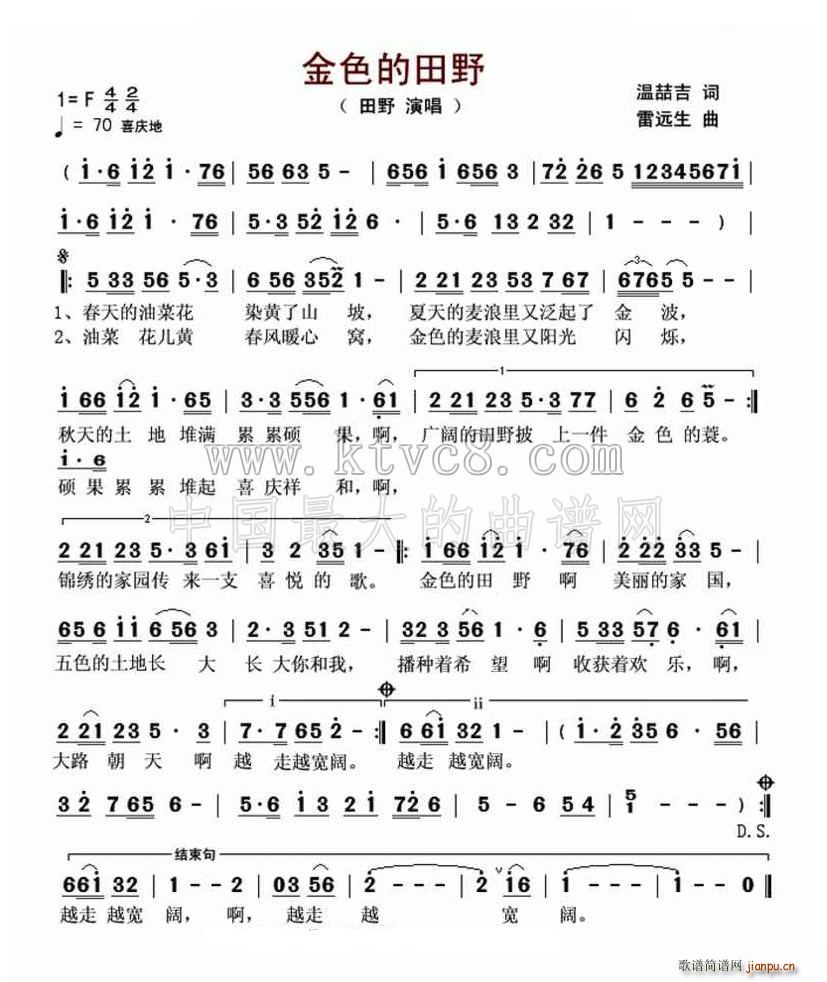 金色的田野
1= F 4/4 2/4
（ 田野 演唱 ）
温喆吉 词
♩ = 70 喜庆地
雷远生 曲
( i·6 i2 i· 76 | 56 63 5 - | 656 i 656 3 | 72 26 5 1234567i |
i·6 i2 i· 76 | 5·3 52 12 6· | 5·6 13 2 32 | 1 - - - ) |
‖: 5 33 56 5·3 | 6 56 352 1 - | 2 21 23 53 7 67 | 6765 5 - |
1、春天的油菜花 染黄了山 坡， 夏天的麦浪里又泛起了 金 波，
2、油菜 花儿黄 春风暖心 窝， 金色的麦浪里又阳光 闪 烁，
1
i 66 i2 i· 65 | 3·3 556 1· 61 | 2 21 23 5·3 77 | 6 2 6 5 - :‖
秋天的土 地 堆满 累 累硕 果，啊， 广阔的田野披 上一件 金 色 的蓑。
i·6
硕 果 累 累 堆起 喜 庆祥 和，啊，
2
2 21 23 5·3 6i | 3 2 35 1 - ‖: i 66 i2 i· 76 | 2 22 33 5 - |
锦绣的家园传 来一支 喜 悦 的 歌。 金色的田 野 啊 美丽的家 国，
65 6 ii 6 56 3 | 2·3 555 2 - | 32 2 56 1· 6 | 5 33 57 6· 61 |
五色的土地长 大 长 大你和我， 播种着希 望 啊 收获着欢 乐，啊，
i ii
2 21 23 5· 3 | 7·7 65 2 - :‖ 6 6i 32 1 - | ( i· 2 35 6· 56 |
大路 朝天 啊 越 走越宽阔。 越走 越宽阔。
3 2 7 65 6 - | 5·6 i 3 2 i 72 6 | 5 - 6 54 | 5/1 - - ) :‖
D.S.
结束句
66i 32 | 1 - - 2 | 03 56 | 2 - - - | 2 i6 | i - - - | 1 - - 0 ‖
越走 越宽 阔， 啊， 越走 越 宽 阔。
www.ktvc8.com
中国最大的曲谱网
歌谱简谱网 jianpu.cn